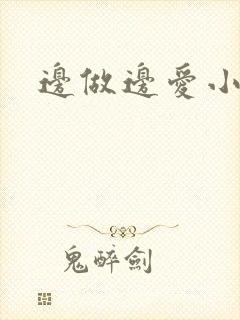 邊做邊愛小
鬼醉劍